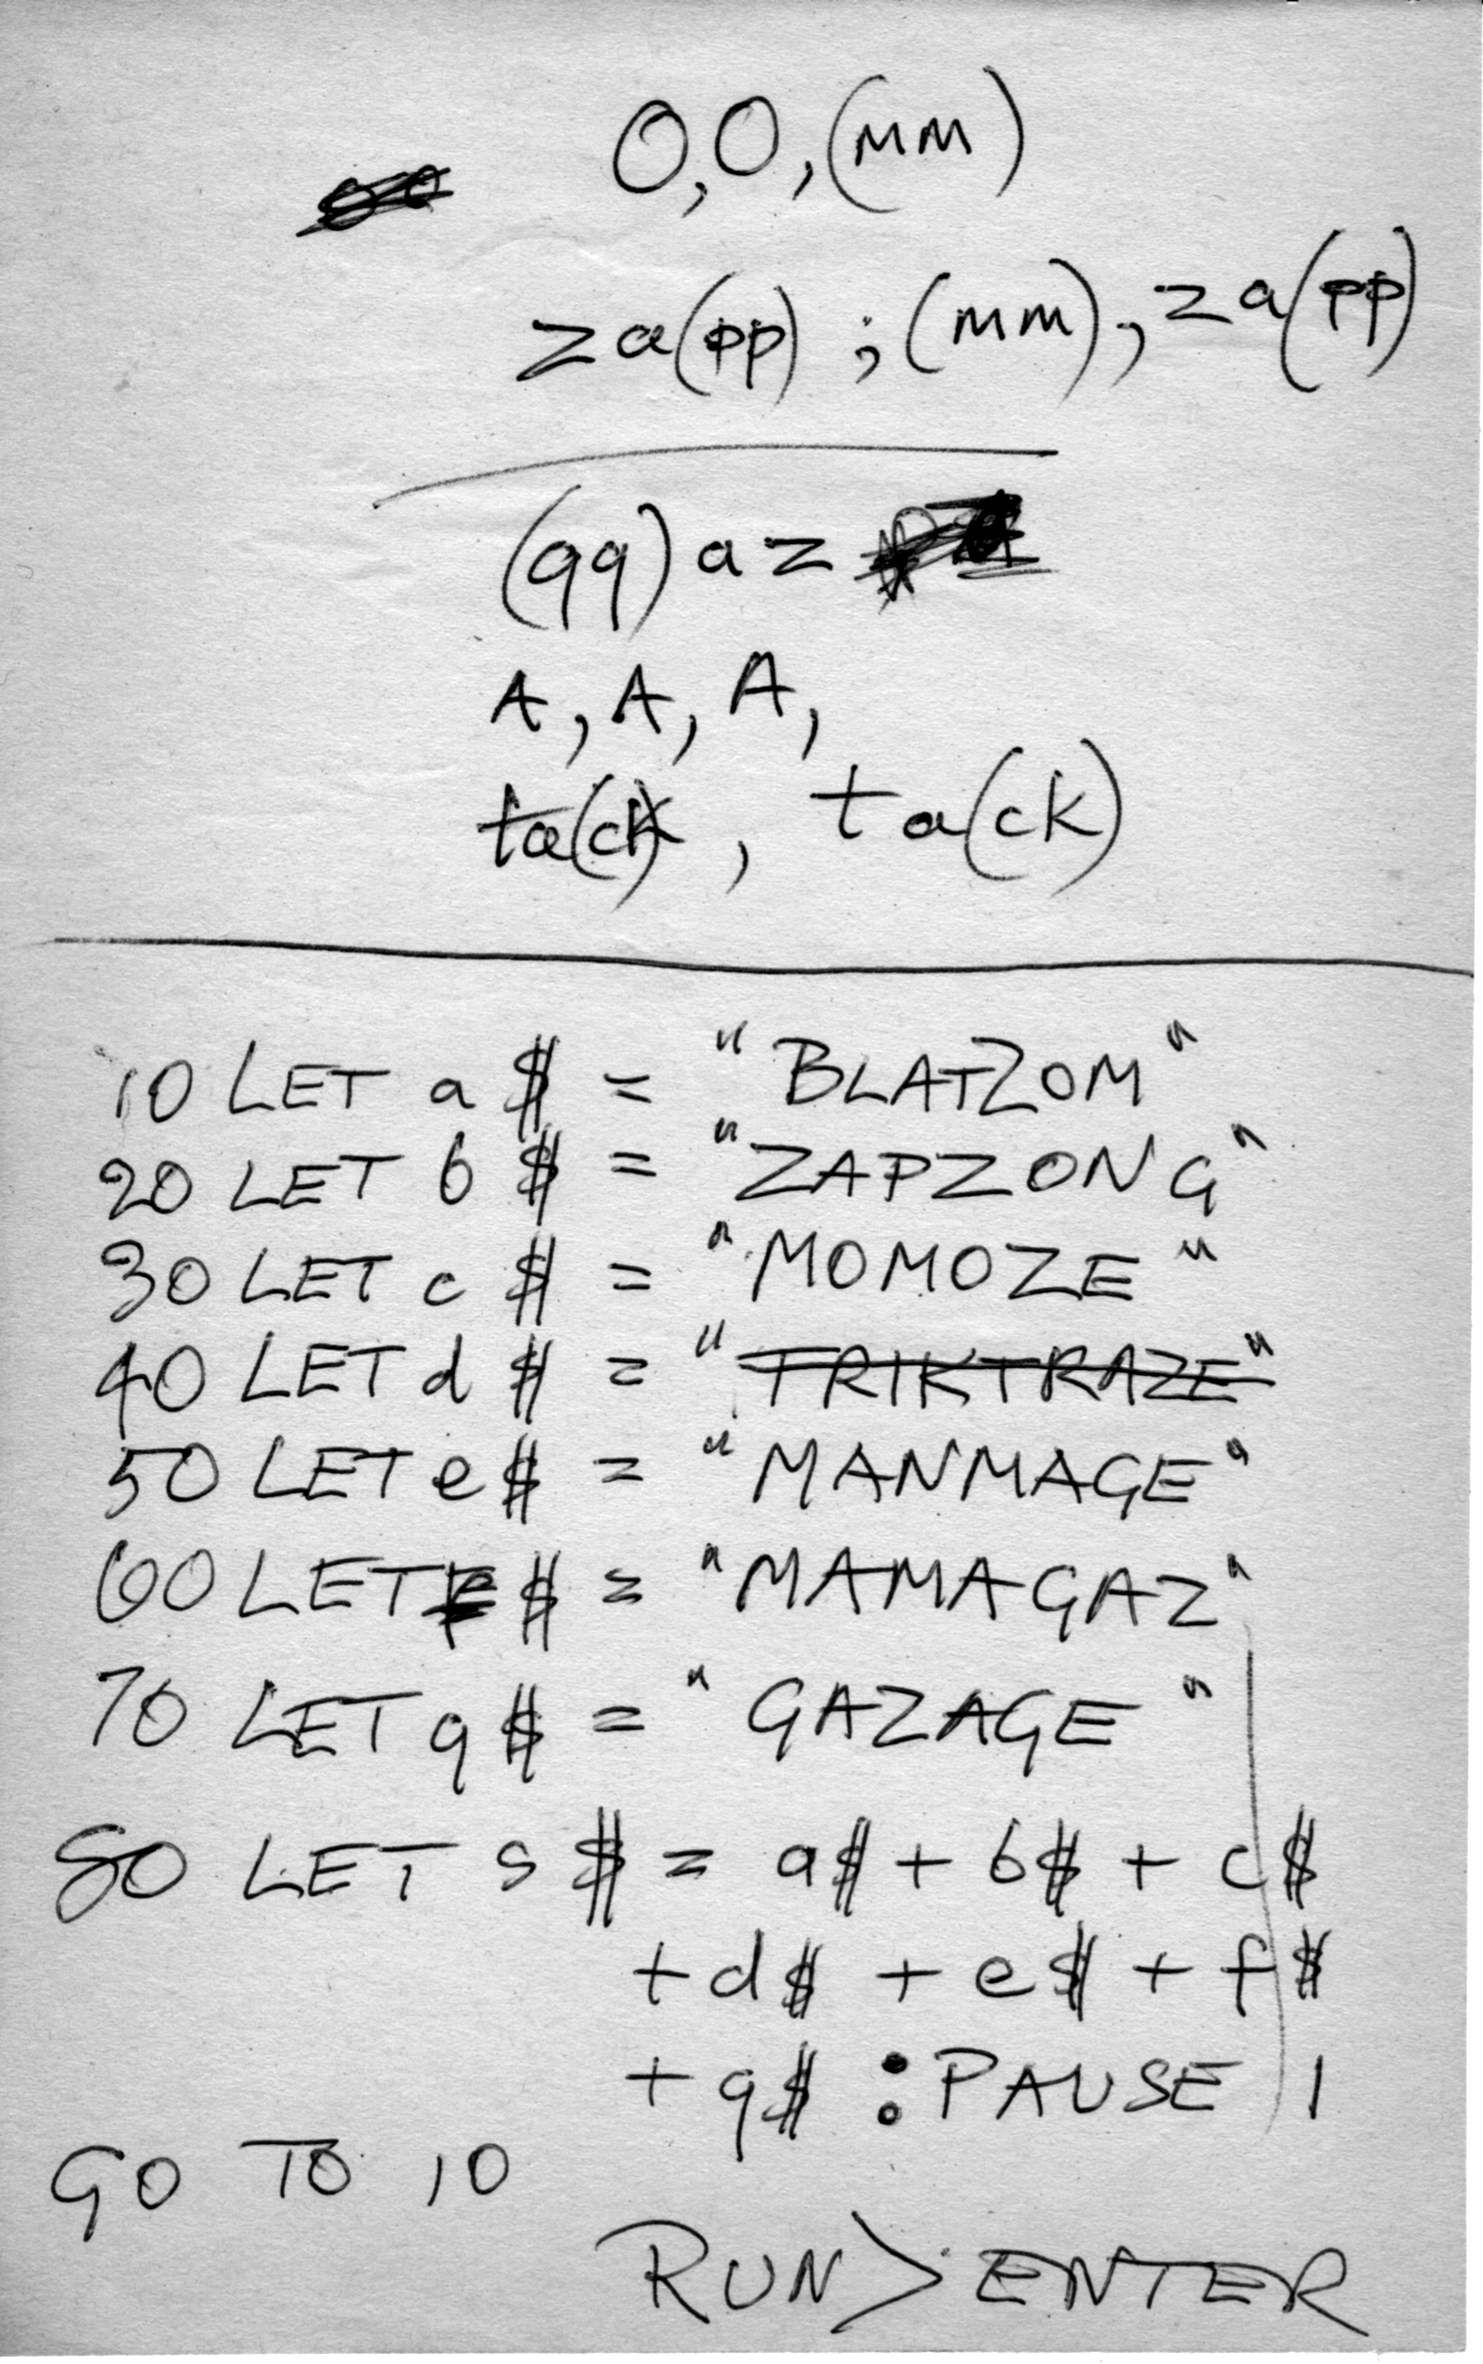 O,O,(MM)
za(pp) ; (MM), za(pp)
(qq) a z
A, A, A,
ta(ck), ta(ck)
10 LET a $ = "BLATZOM"
20 LET b $ = "ZAPZONG"
30 LET c $ = "MOMOZE"
40 LET d $ = "TRIKTRAZE"
50 LET e $ = "MANMAGE"
60 LET F $ = "MAMAGAZ"
70 LET g $ = "GAZAGE"
80 LET s $ = a$ + b$ + c$
+ d$ + e$ + f$
+ g$ : PAUSE 1
GO TO 10
RUN > ENTER